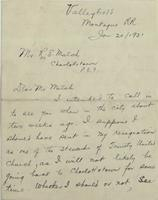 Valleyfield
Montague RR
Jan 20/1931
Mr. R. E. Mutch
Charlottetown
P.E.I.
Dear Mr Mutch
I intended to call in
to see you when in the city about
two weeks ago. I suppose I
should have sent in my resignation
as one of the stewards of Trinity United
Church, as I will not likely be
going back to Charlottetown for some
time. Whether I should or not